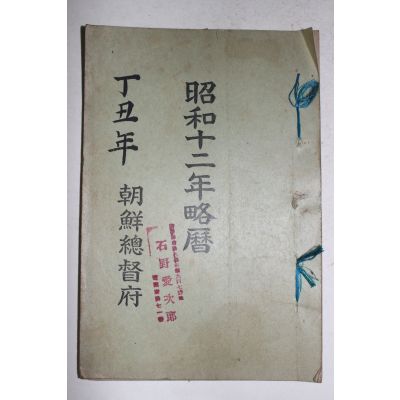 昭和十二年略暦
丁丑年 朝鮮總督府
石野愛次郎